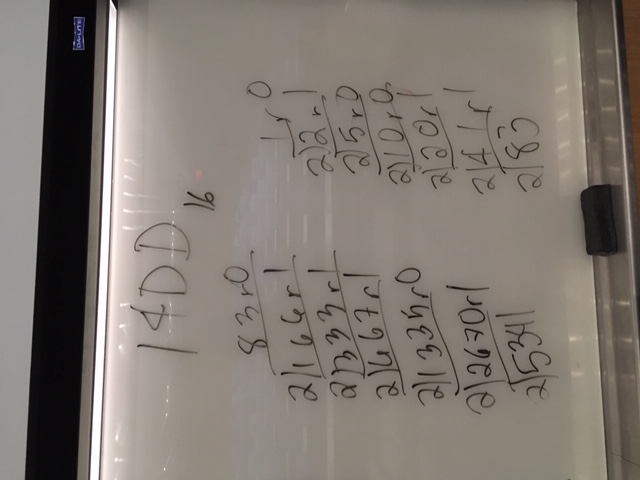 DA-LITE
14DD16
83 r0
2)166 r1
2)333 r1
2)667 r1
2)1335 r0
2)2670 r1
2)5341
1 r 0
2)2 r1
2)5 r0
2)10 r0
2)20 r1
2)41 r1
2)83